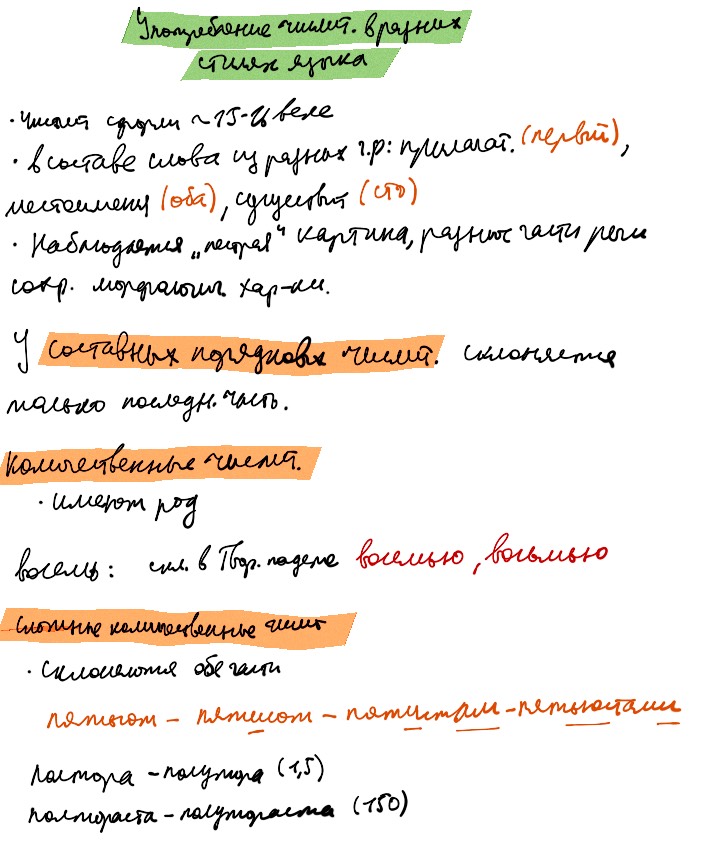 Употребление числит. в разных
стилях языка
· числит сформ ~ 15-16 веке
· в составе слова из разных г.р: прилагат. (первый),
местоимения (оба), существит (сто)
· Наблюдается „пестрая“ картина, разные части речи
сохр. морфологич. хар-ки.
У составных порядковых числит. склоняется
только последн. часть.
Количественные числит.
· имеют род
восемь: скл. в Твор. падеже восемью, восьмью
Сложные количественные числит
· склоняются обе части
пятьсот – пятисот – пятистам – пятьюстами
полтора – полутора (1,5)
полтораста – полутораста (150)